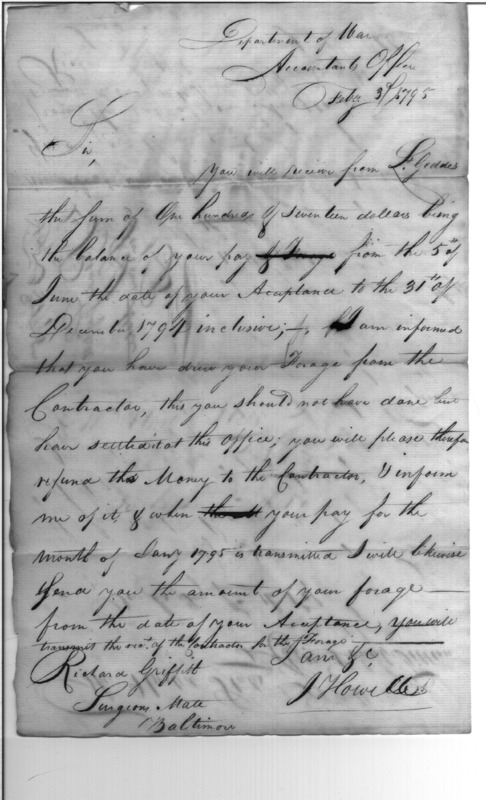 Department of War
Accountants Office
Feby 3d 1795
Sir,
You will receive from L. Geddes
the sum of One hundred & seventeen dollars being
the balance of your pay & Forage from the 5th of
June the date of your Aceptance to the 31st of
December 1794 inclusive; I am informed
that you have drew your Forage from the
Contractor, this you should not have done but
have settled it at this office; you will please therefore
refund the Money to the Contractor, & inform
me of it, & when your pay for the
month of Jany 1795 is transmitted I will likewise
send you the amount of your forage
from the date of your Aceptance, you will
transmit the rect. of the Contractor for the Forage
I am &c
Richard Griffith
J Howell
Surgeons Mate
Baltimore